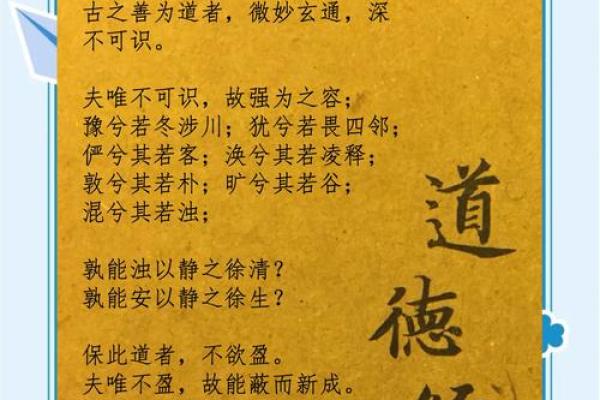 古之善为道者，微妙玄通，深
不可识。
夫唯不可识，故强为之容；
豫兮若冬涉川；犹兮若畏四邻；
俨兮其若客；涣兮其若凌释；
敦兮其若朴；旷兮其若谷；
混兮其若浊；
孰能浊以静之徐清？
孰能安以静之徐生？
保此道者，不欲盈。
夫唯不盈，故能蔽而新成。
道德